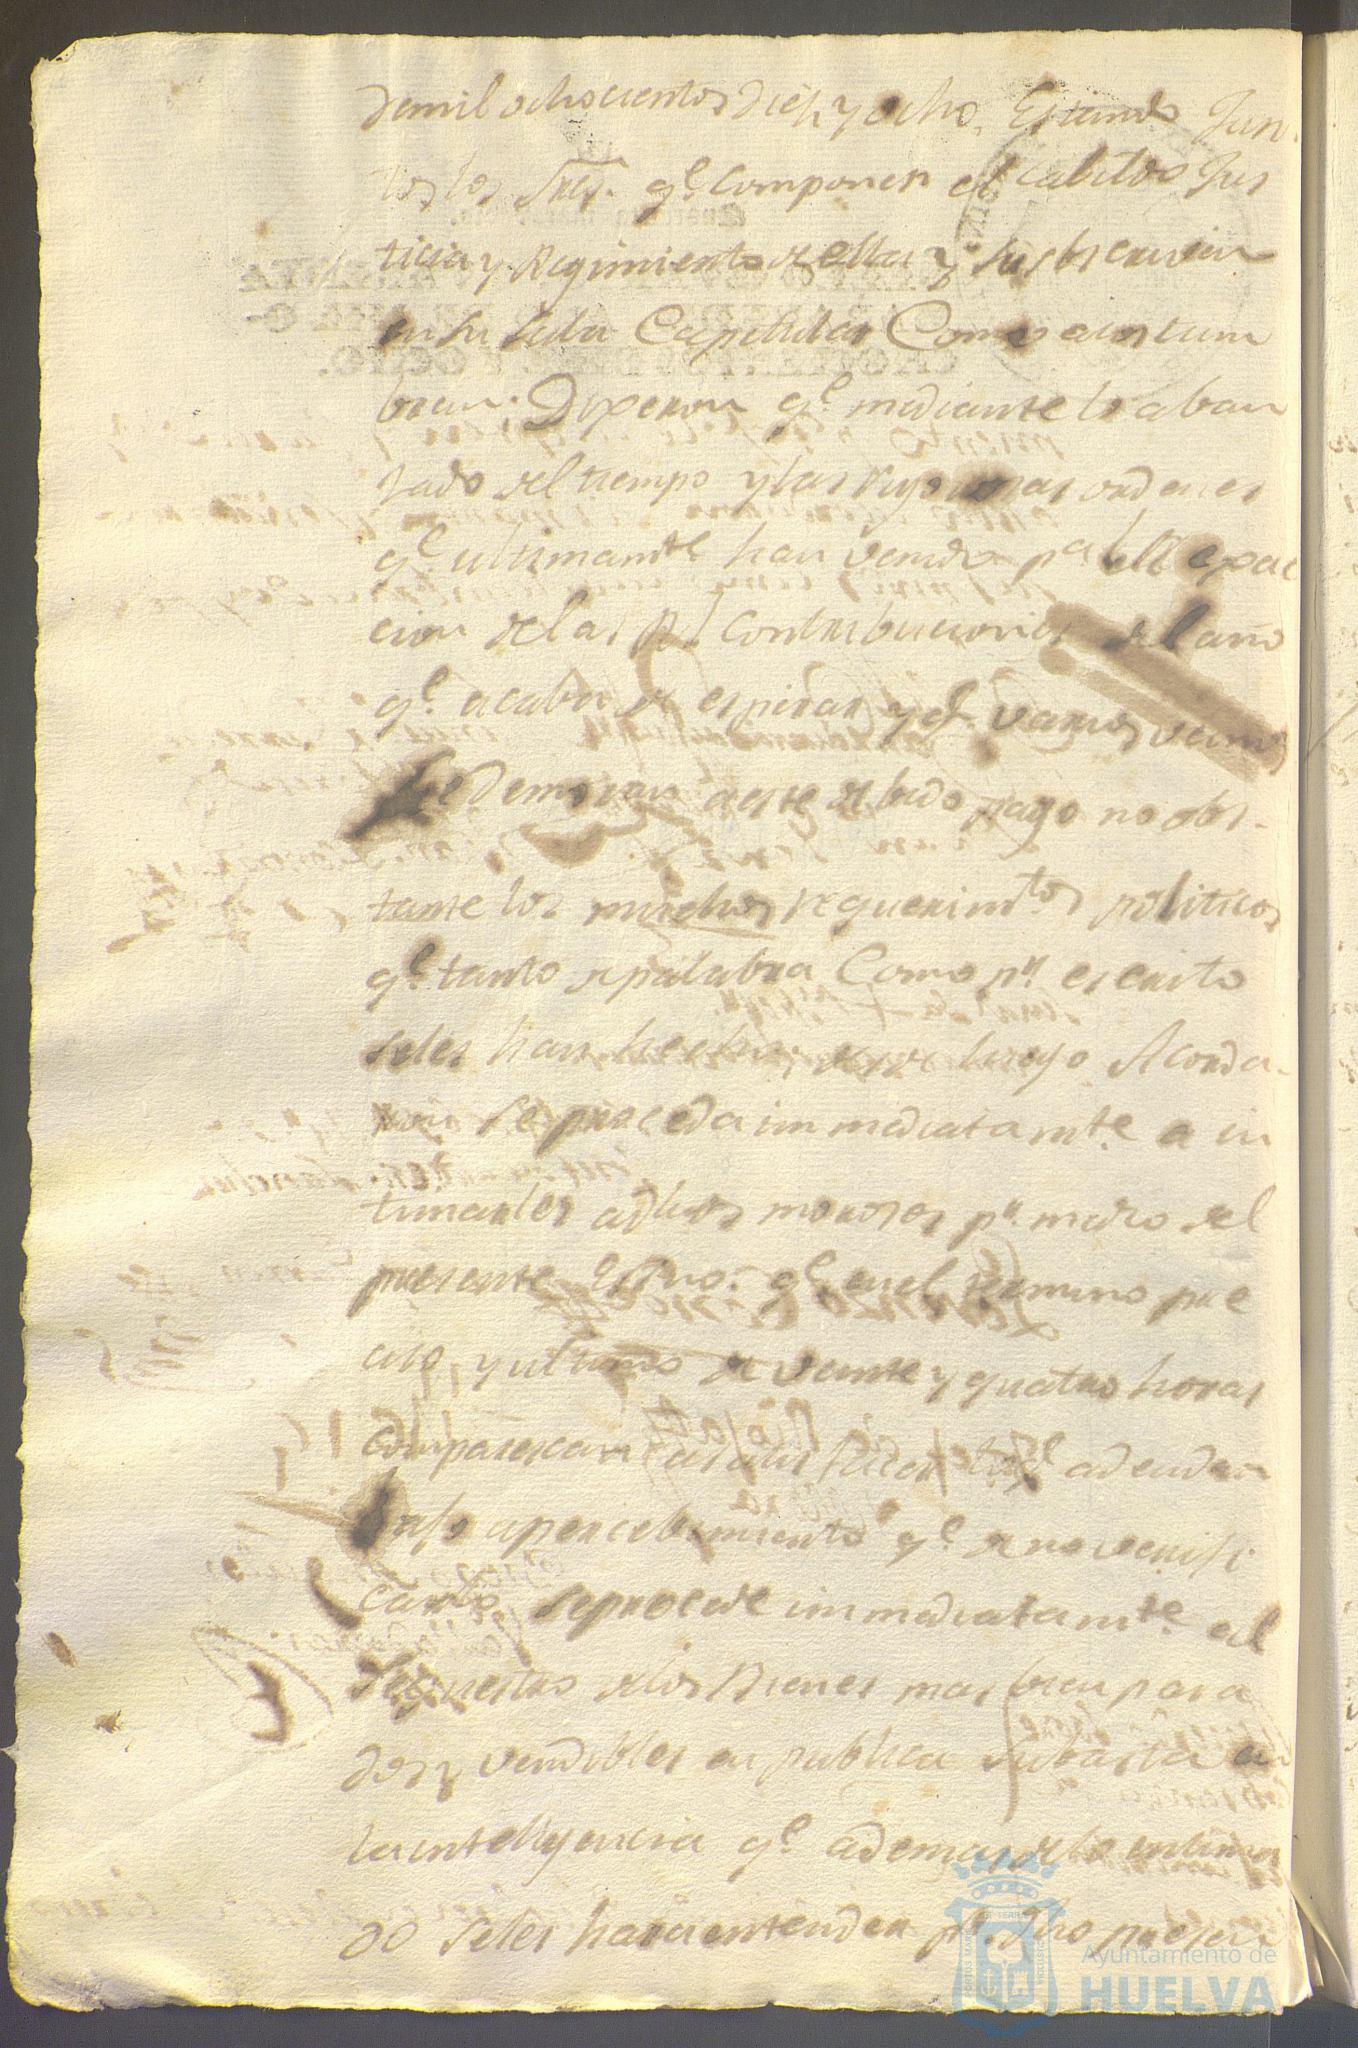 de mil ochocientos diez y ocho, Estando Jun-
tos los Sres. qe. componen el cabildo Jus
ticia y Regimiento de ella qe. subscriven
en su sala Capitular Como acostum
bran: Dixeron qe. mediante lo aban
zado del tiempo y las rigorosas ordenes
qe. ultimamte. han venido pa. la exac
cion de las Rs. contribuciones del año
qe. acaba de espirar y qe. varios vecinos
se demoran a este debido pago no obs-
tante los muchos requerimtos politicos
qe. tanto de palabra Como pr. escrito
seles han hecho, desde luego Acorda-
ron Se proceda immediatamte. a in
timarles a dhos morosos pr. medio del
presente Esno. qe. en el termino pre
ciso y ultimo de veinte y quatro horas
comparescan a satisfacer lo qe. adeudan
baxo apercebimiento qe. de no verifi
carlo se procede immediatamte. al
Sequestro de los Bienes mas bien para
dos y vendibles en publica subasta en
la intelligencia qe. ademas de lo
do seles hara entender pr. dho presen
Ayuntamiento de
HUELVA